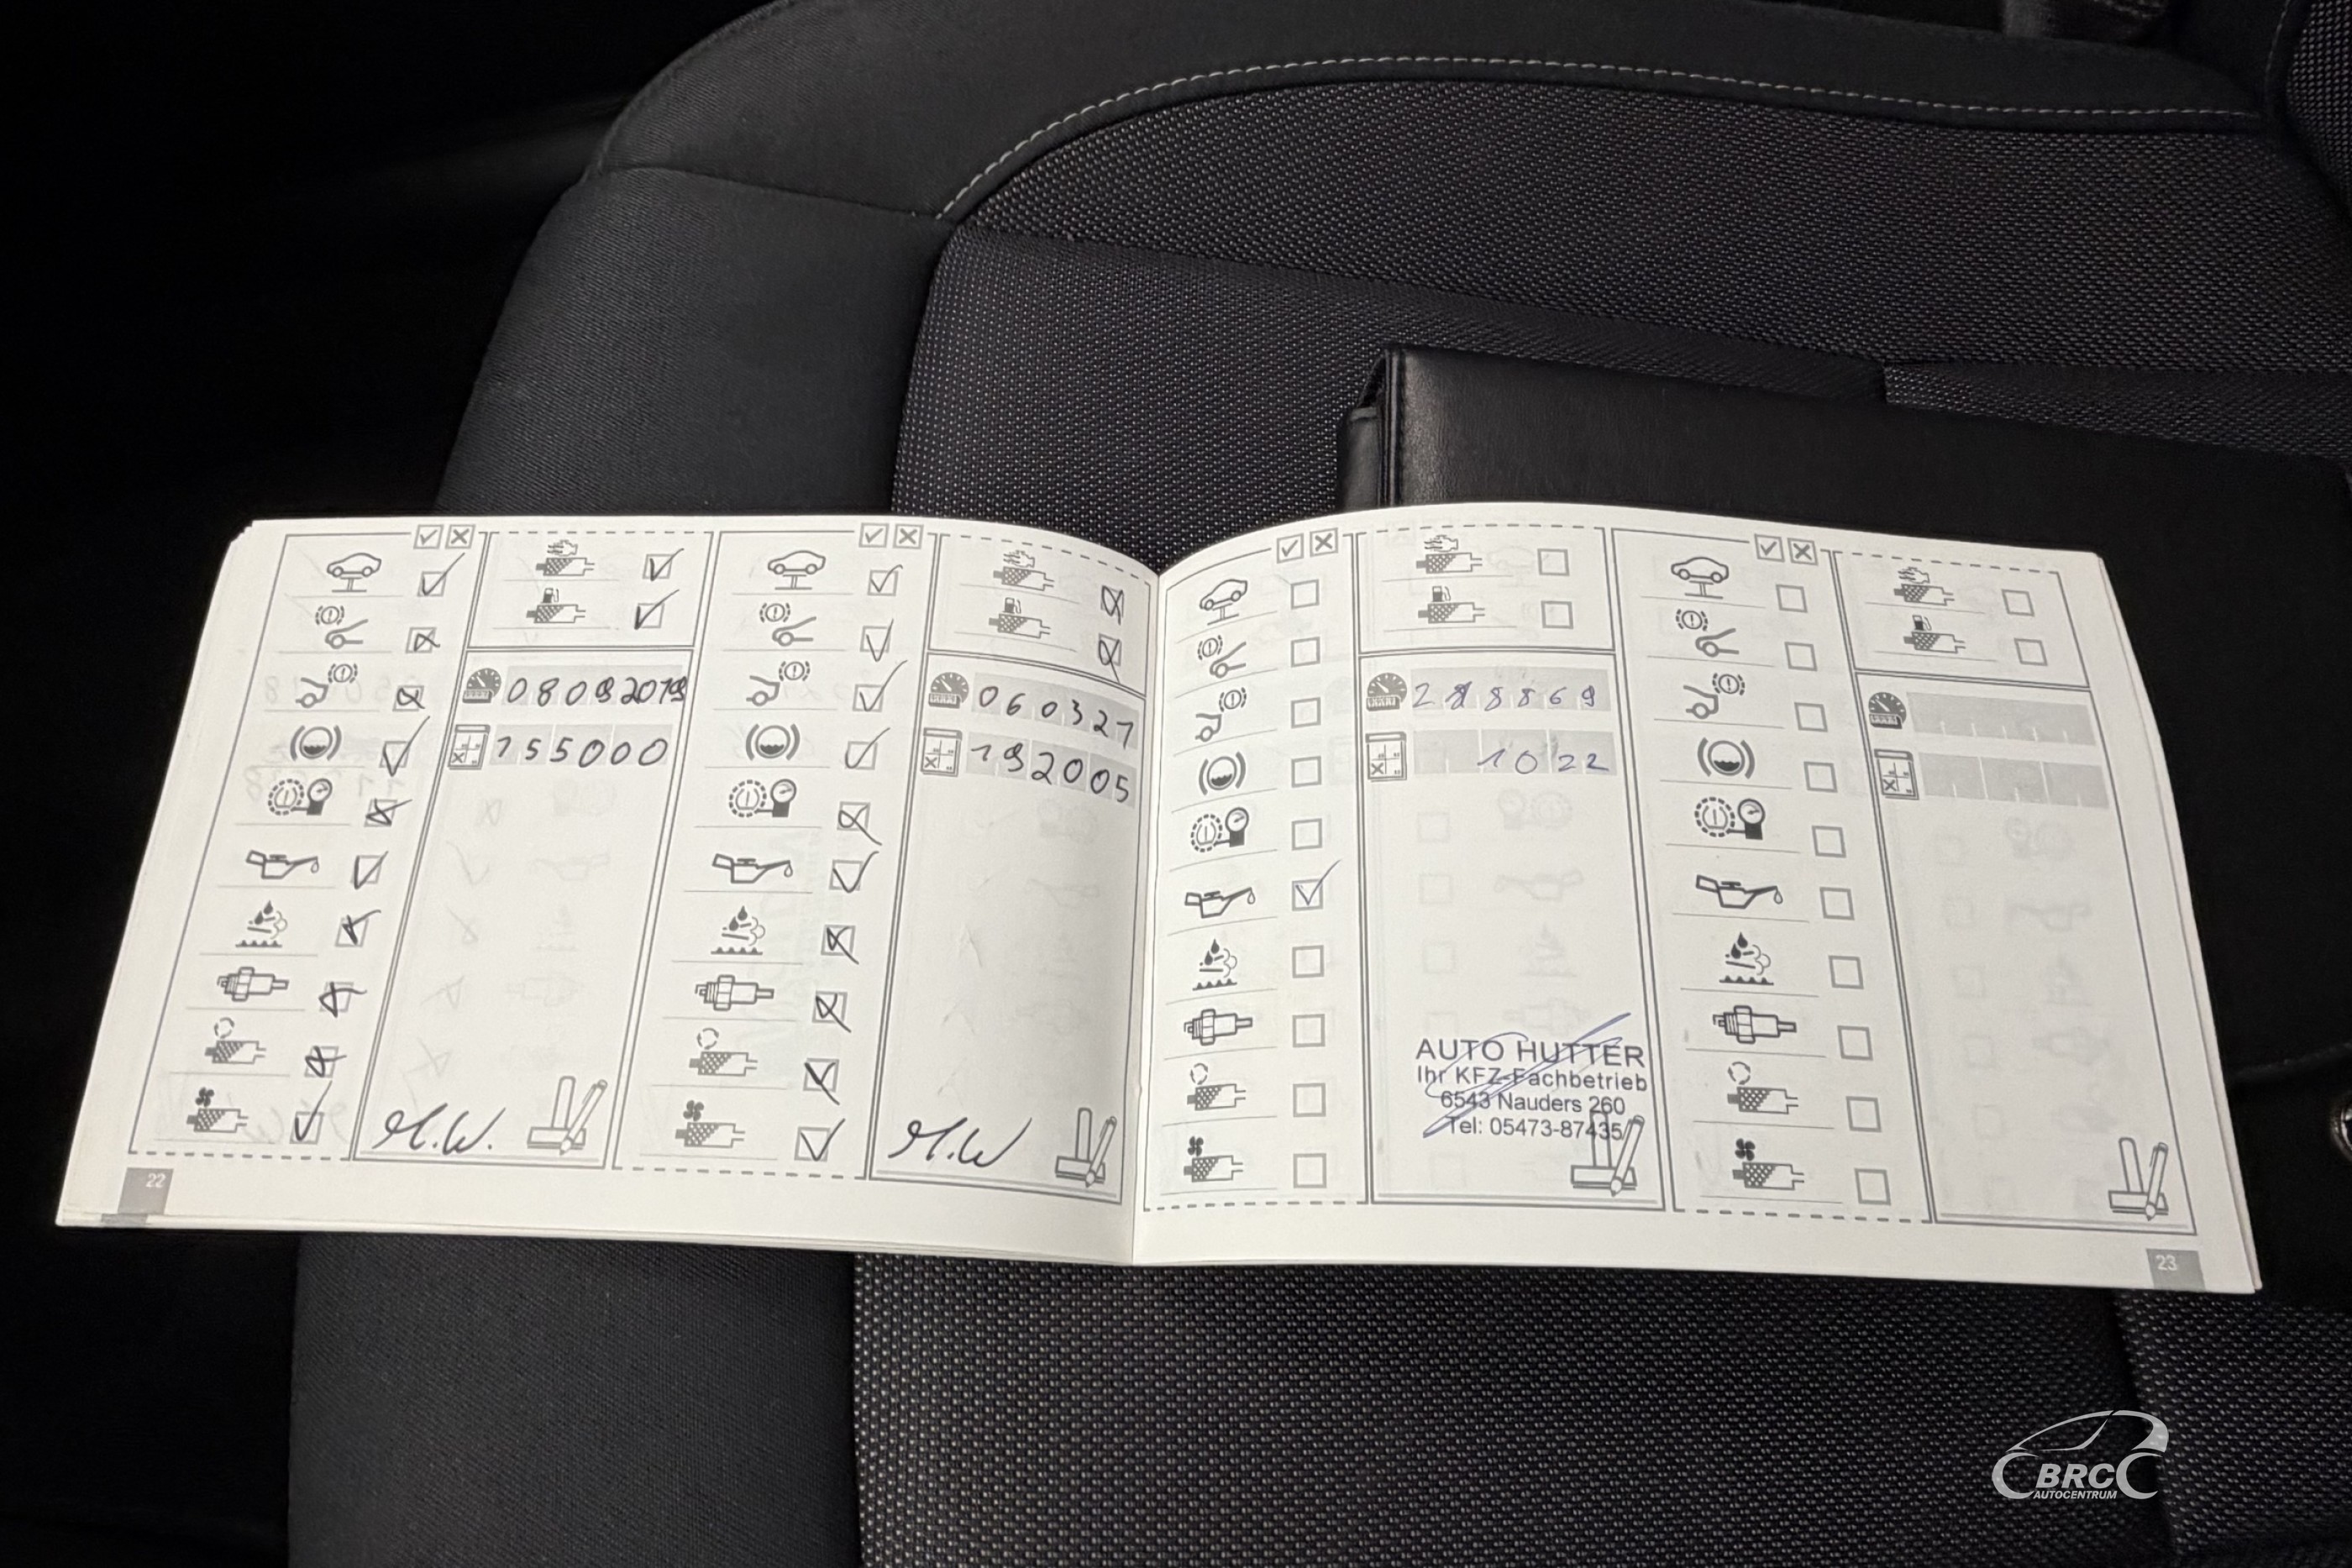 08092019
155000
M.W.
060321
192005
M.W
22
288869
1022
AUTO HUTTER
Ihr KFZ-Fachbetrieb
6543 Nauders 260
Tel: 05473-87435
23
BRC
AUTOCENTRUM